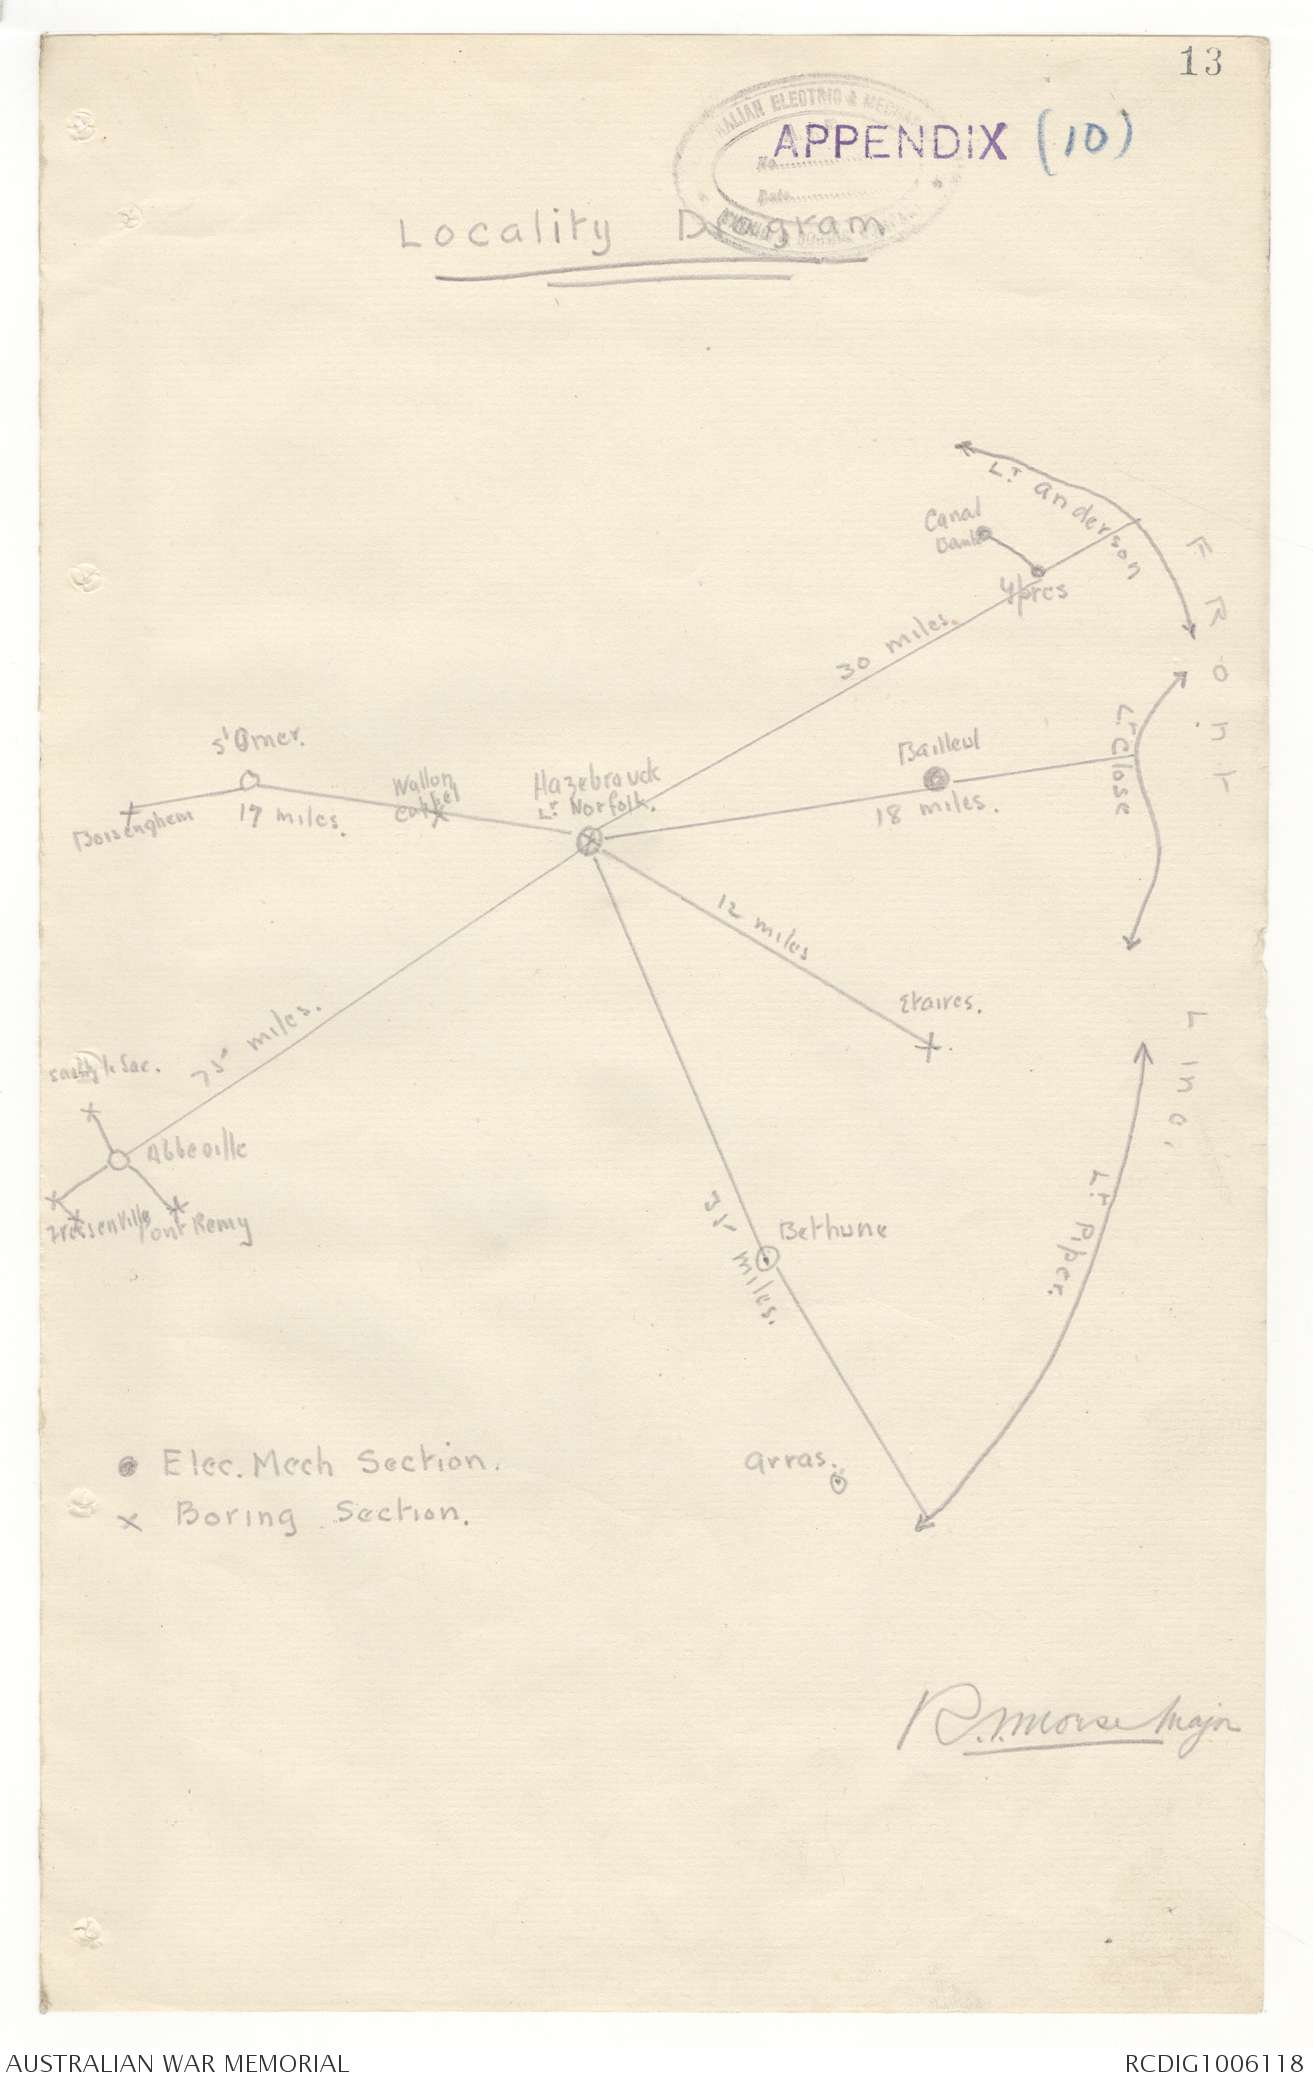 13
APPENDIX (10)
ALIAN ELECTRIC &
No.
Date
Locality Diagram
Lt Anderson
Canal
Bank
Ypres
FRONT
30 miles.
St Omer.
Bailleul
Lt Close
Wallon
Cappel
Hazebrouck
Lt Norfolk.
Boisenghem
17 miles.
18 miles.
12 miles
Etaires.
75 miles.
Line,
Abbeville
35 miles.
Lt Piper.
Pont Remy
Bethune
Arras.
Elec. Mech Section.
x Boring Section.
R. Morse Major
AUSTRALIAN WAR MEMORIAL
RCDIG1006118